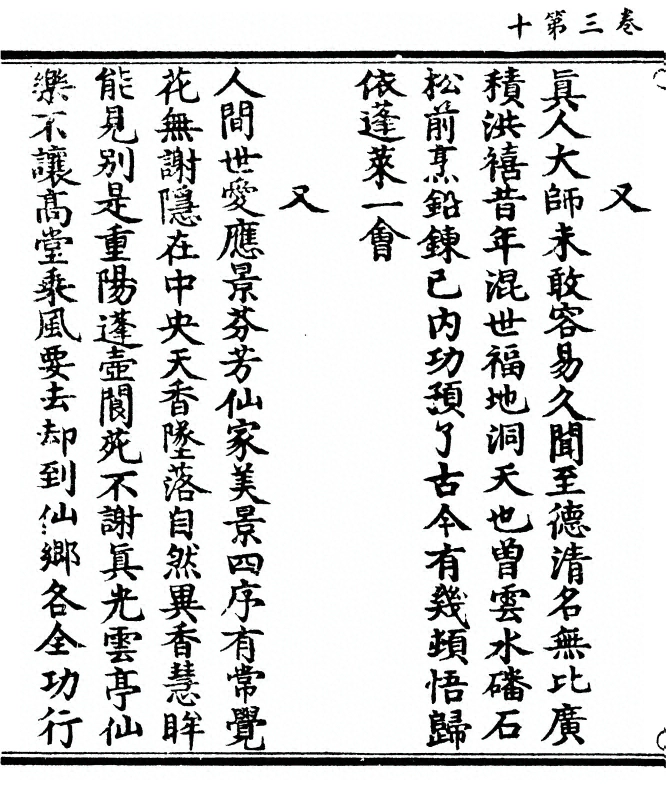 卷三第十
又
真人大師未敢容易久聞至德清名無比廣
積洪禧昔年混世福地洞天也曾雲水磻石
松前烹鉛鍊已內功預了古今有幾頻悟歸
依蓬萊一會
又
人間世愛應景芬芳仙家美景四序有常覺
花無謝隱在中央天香墜落自然異香慧眸
能見別是重陽蓬壺閬苑不謝真光雲亭仙
樂不讓高堂乘風要去却到仙鄉各全功行